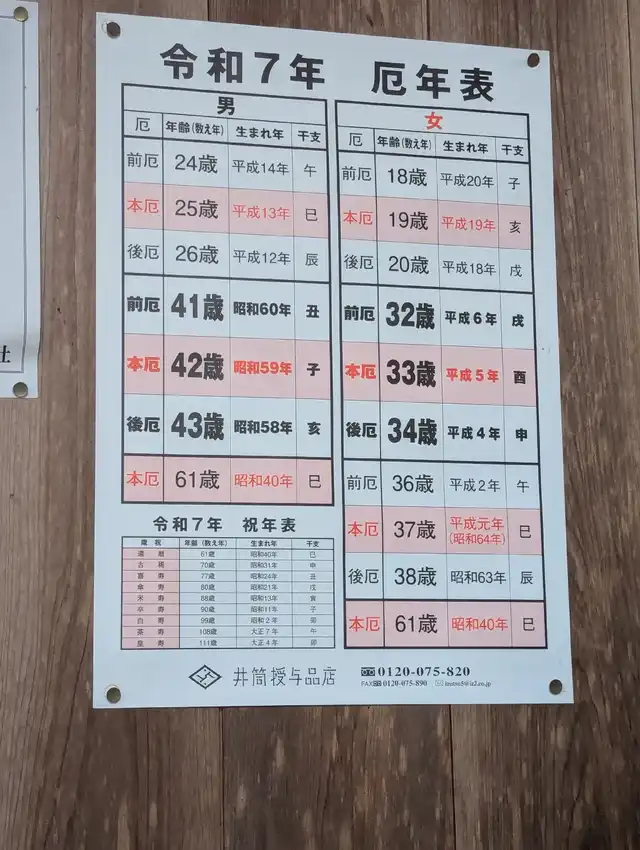 令和7年　厄年表
男
厄 年齢(数え年) 生まれ年 干支
前厄 24歳 平成14年 午
本厄 25歳 平成13年 巳
後厄 26歳 平成12年 辰
前厄 41歳 昭和60年 丑
本厄 42歳 昭和59年 子
後厄 43歳 昭和58年 亥
本厄 61歳 昭和40年 巳
女
厄 年齢(数え年) 生まれ年 干支
前厄 18歳 平成20年 子
本厄 19歳 平成19年 亥
後厄 20歳 平成18年 戌
前厄 32歳 平成6年 戌
本厄 33歳 平成5年 酉
後厄 34歳 平成4年 申
前厄 36歳 平成2年 午
本厄 37歳 平成元年 巳
(昭和64年)
後厄 38歳 昭和63年 辰
本厄 61歳 昭和40年 巳
令和7年　祝年表
歳祝 年齢(数え年) 生まれ年 干支
還暦 61歳 昭和40年 巳
古稀 70歳 昭和31年 申
喜寿 77歳 昭和24年 丑
傘寿 80歳 昭和21年 戌
米寿 88歳 昭和13年 寅
卒寿 90歳 昭和11年 子
白寿 99歳 昭和2年 卯
茶寿 108歳 大正7年 午
皇寿 111歳 大正4年 卯
井筒授与品店
0120-075-820
FAX 0120-075-890
社